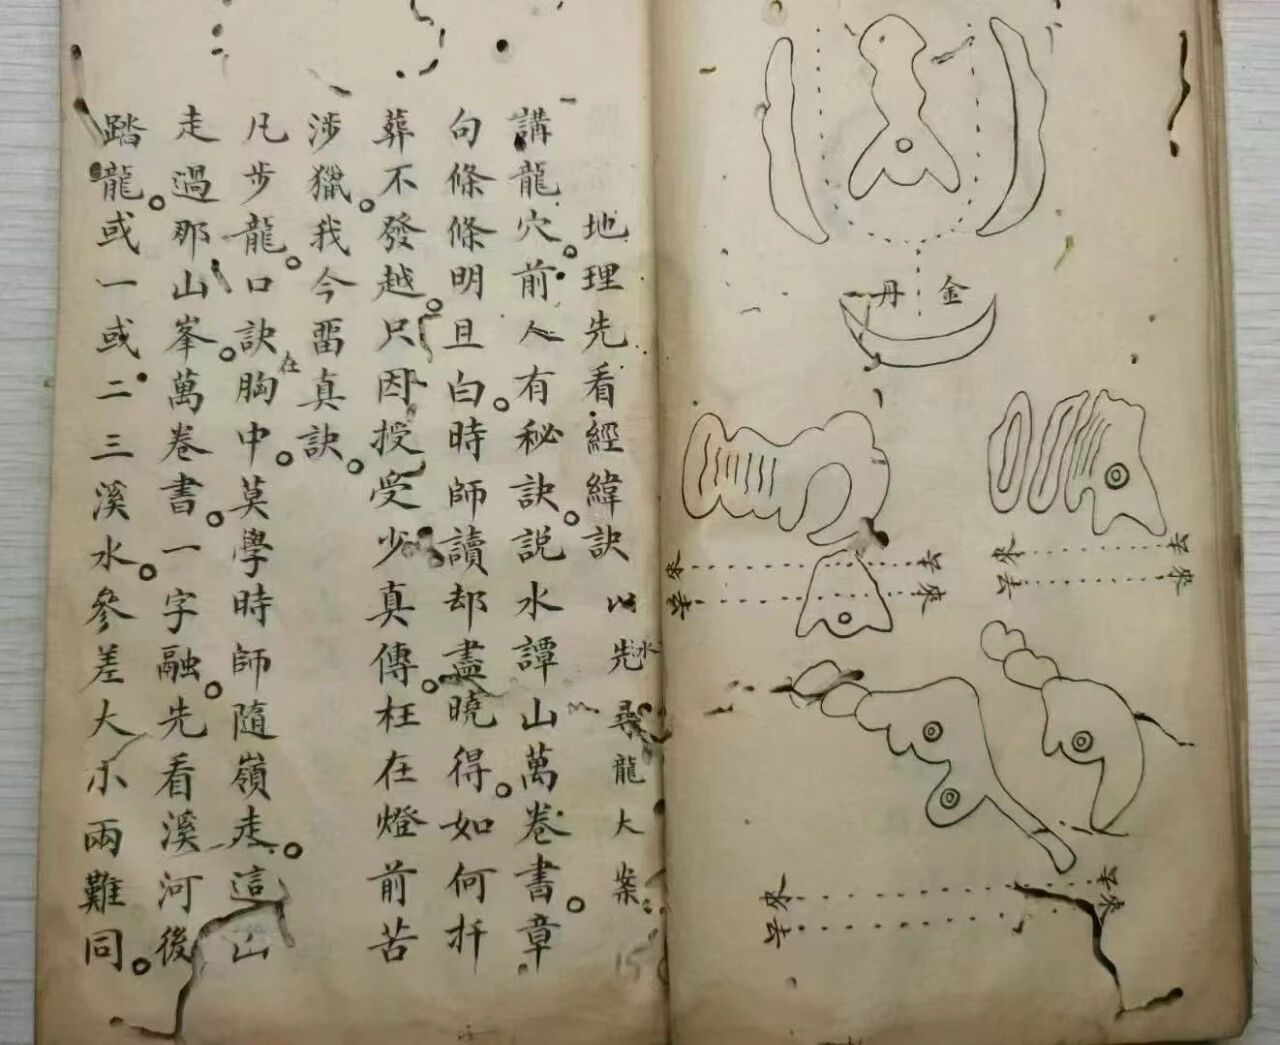 金丹
地理先看經緯訣 以先水尋龍大案
講龍穴。前人有秘訣。説水譚山萬卷書。章
句條條明且白。時師讀却盡曉得。如何扦
葬不發越。只因授受少真傳。枉在燈前苦
涉獵。我今畱真訣。
凡步龍。口訣在胸中。莫學時師隨嶺走。這山
走過那山峯。萬卷書。一字融。先看溪河後
踏龍。或一或二三溪水。參差大小兩難同。